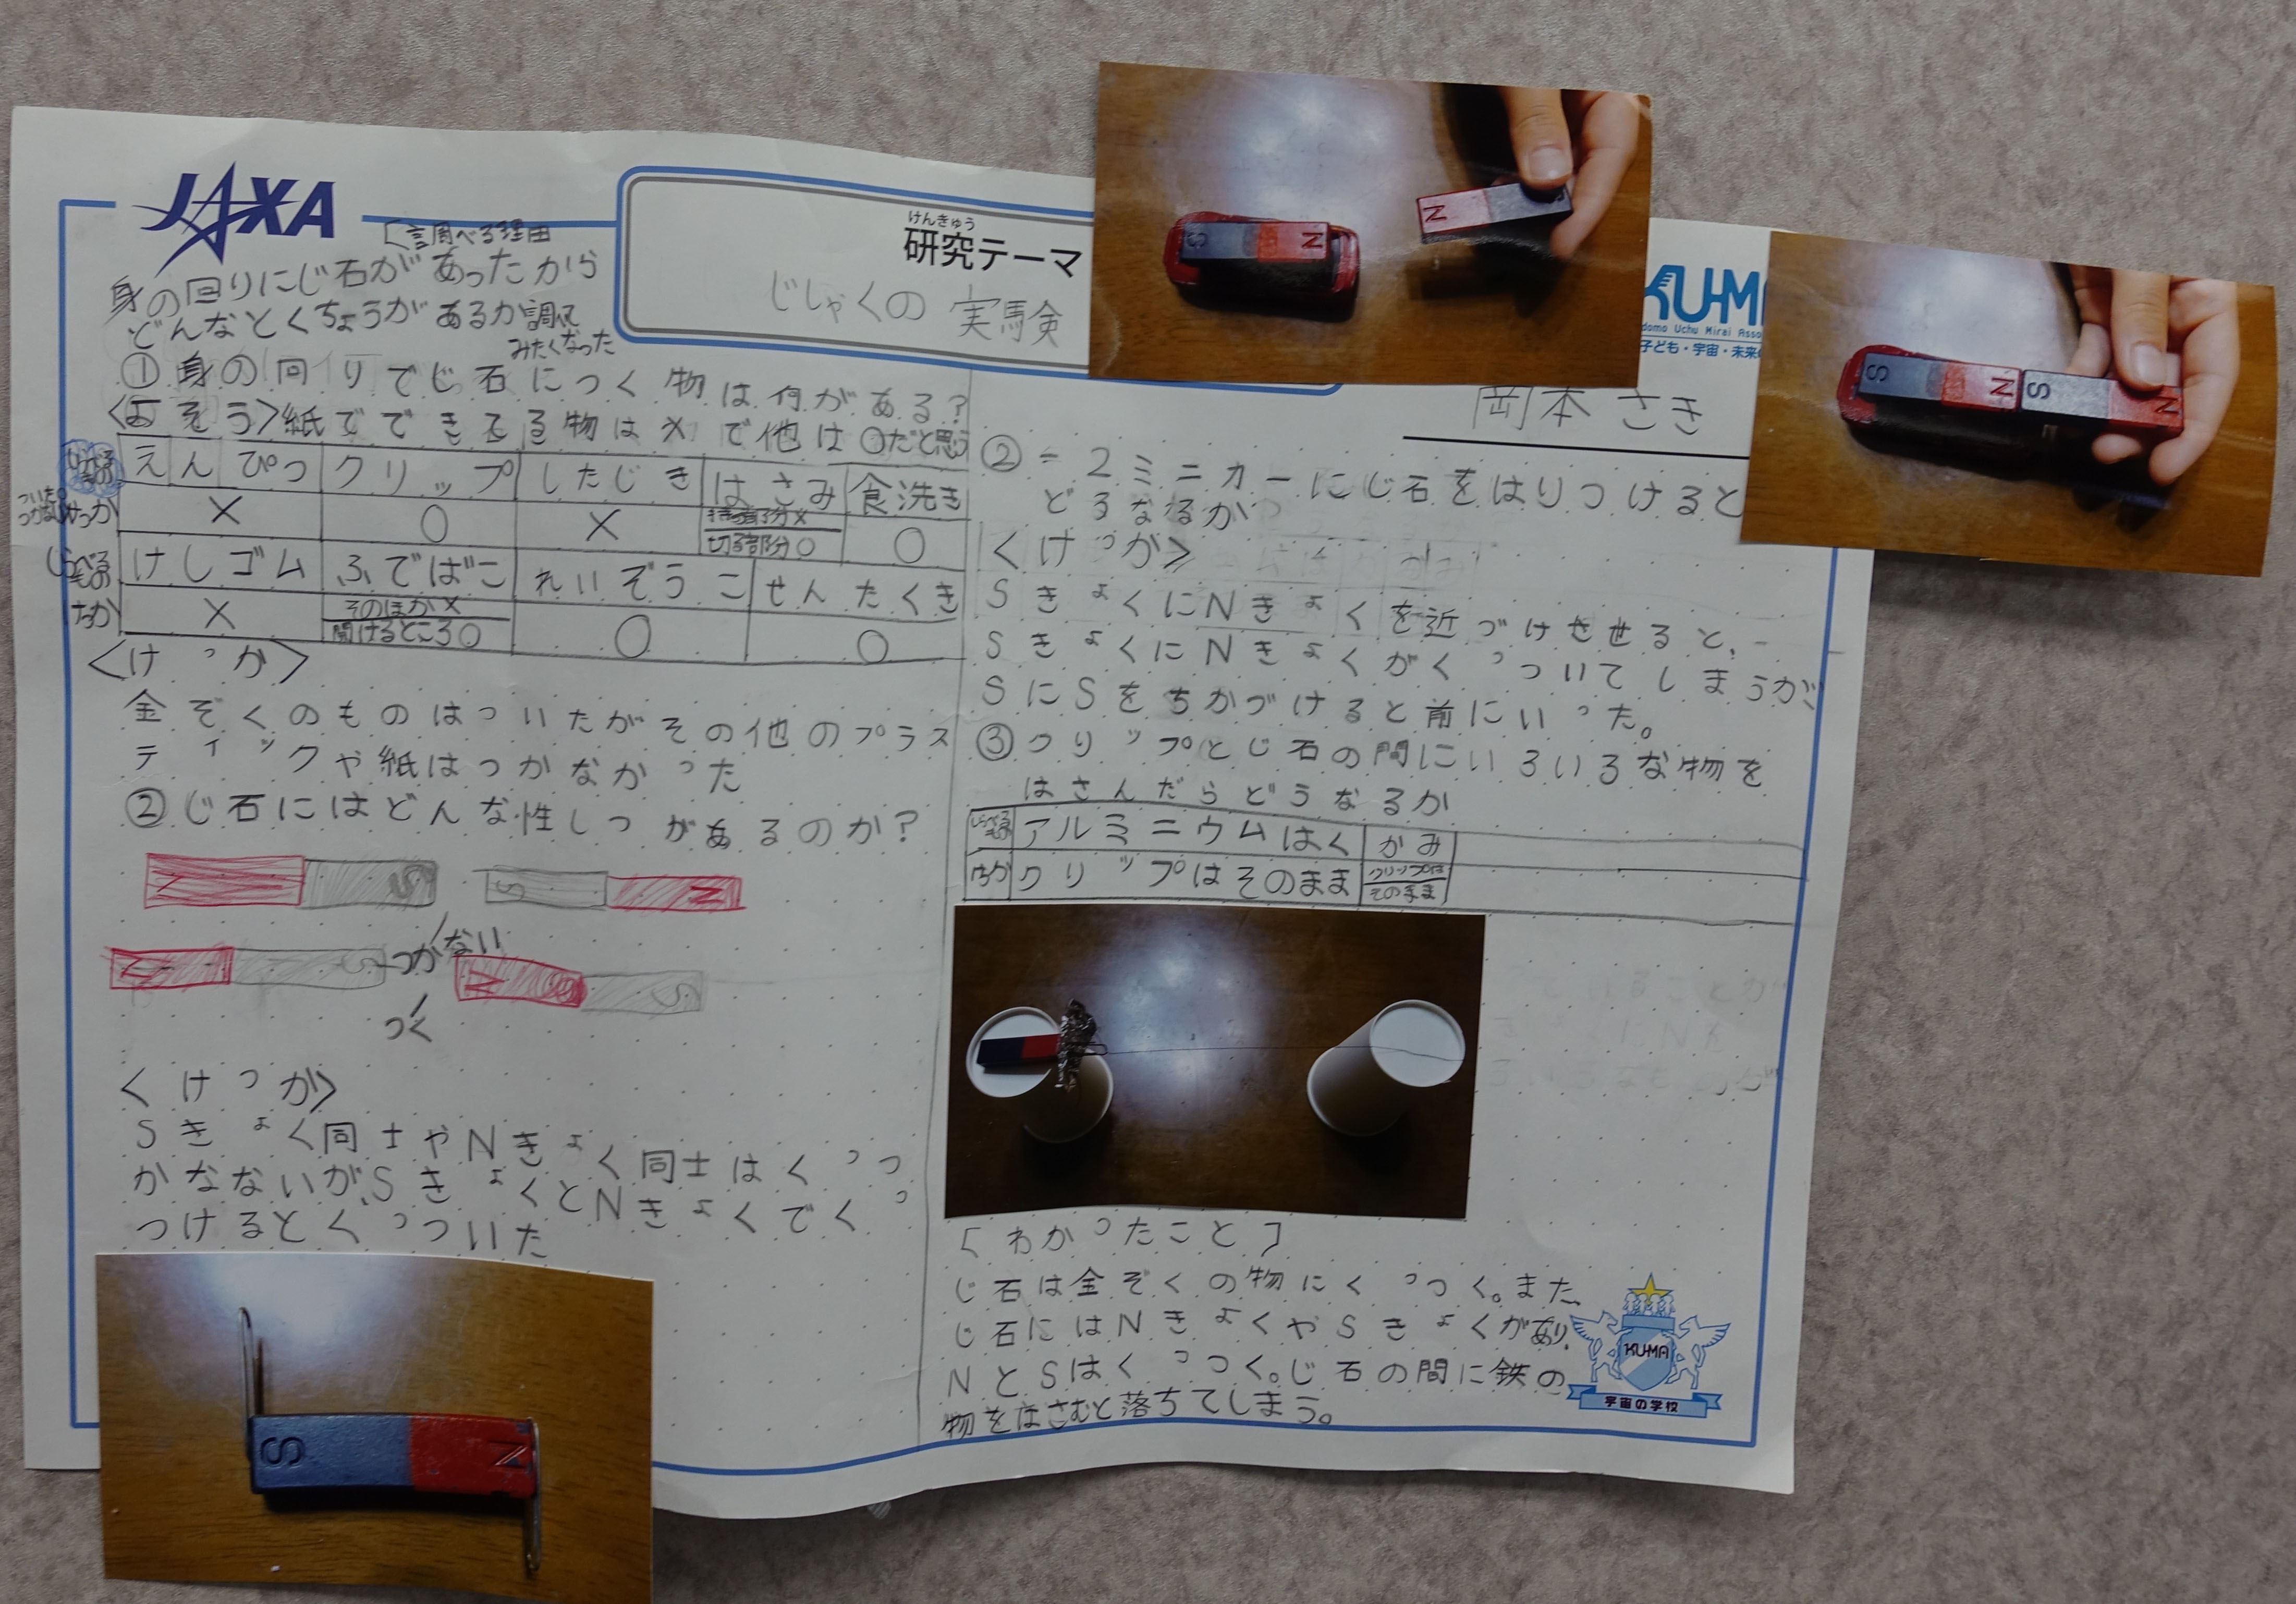 JAXA
けんきゅう
研究テーマ
じしゃくの 実験
KU-MA
子ども・宇宙・未来
岡本 さき
[調べる理由
身の回りにじ石があったから
どんなとくちょうがあるか調べて
みたくなった
①身の回りでじ石につく物は何がある?
<よそう>紙でできてる物は×で他は○だと思う
しらべるもの えんぴつ クリップ したじき はさみ 食洗き
けっか × ○ × 持つ部分× 切る部分○ ○
しらべるもの けしゴム ふでばこ れいぞうこ せんたくき
けっか × そのほか× 開けるところ○ ○ ○
<けっか>
金ぞくのものはついたがその他のプラス
ティックや紙はつかなかった
②じ石にはどんな性しつがあるのか?
N S S N
つかない
N S N S
つく
<けっか>
Sきょく同士やNきょく同士はくっつ
かなないが、SきょくとNきょくでくっ
つけるとくっついた
S N
②-2ミニカーにじ石をはりつけると
どうなるか
<けっか>
SきょくにNきょくを近づけさせると、
SきょくにNきょくがくっついてしまうが、
SにSをちかづけると前にいった。
③クリップとじ石の間にいろいろな物を
はさんだらどうなるか
しらべるもの アルミニウムはく かみ
けっか クリップはそのまま クリップはそのまま
[わかったこと]
じ石は金ぞくの物にくっつく。また、
じ石にはNきょくやSきょくがあり、
NとSはくっつく。じ石の間に鉄の
物をはさむと落ちてしまう。
KU-MA
宇宙の学校
S N N S
S N S N